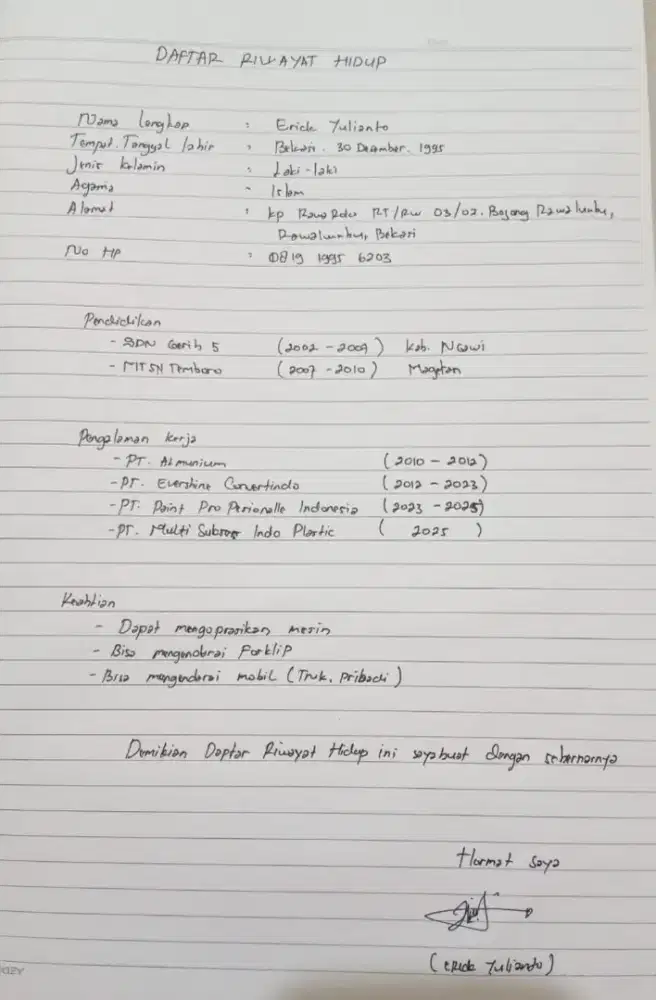 DAFTAR RIWAYAT HIDUP
Nama lengkap : Erick Yulianto
Tempat. Tanggal lahir : Bekasi. 30 Desember. 1995
Jenis kelamin : Laki-laki
Agama : Islam
Alamat : kp Rawa Roko RT/RW 03/02. Bojong Rawalumbu,
Rawalumbu, Bekasi
No HP : 0819 1995 6203
Pendidikan
- SDN Gerih 5 (2002 - 2007) Kab. Ngawi
- MTSN Temboro (2007 - 2010) Magetan
Pengalaman kerja
- PT. Almunium (2010 - 2012)
- PT. Evershine Convertindo (2012 - 2023)
- PT. Paint Pro Indonesia (2023 - 2025)
- PT. Multi Indo Plastic ( 2025 )
Keahlian
- Dapat mengoprasikan mesin
- Bisa mengendarai Forklip
- Bisa mengendarai mobil (Truk, Pribadi)
Demikian Daptar Riwayat Hidup ini saya buat dengan sebernarnya
Hormat saya
(Erick Yulianto)